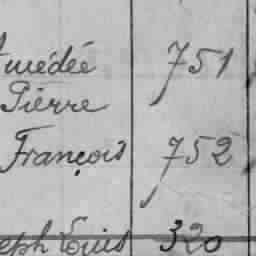 Amédée 751
Pierre
François 752
eph Louis 320